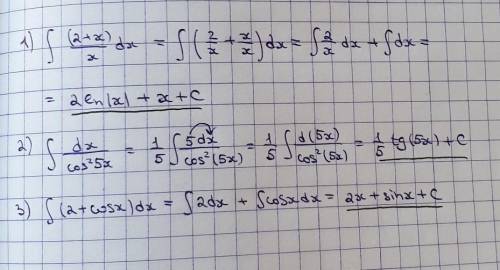 1) ∫ (2+x)/x dx = ∫ (2/x + x/x) dx = ∫ 2/x dx + ∫ dx =
= 2 ln|x| + x + C
2) ∫ dx/cos²5x = 1/5 ∫ 5dx/cos²(5x) = 1/5 ∫ d(5x)/cos²(5x) = 1/5 tg(5x) + C
3) ∫ (2+cosx)dx = ∫ 2dx + ∫ cosx dx = 2x + sinx + C